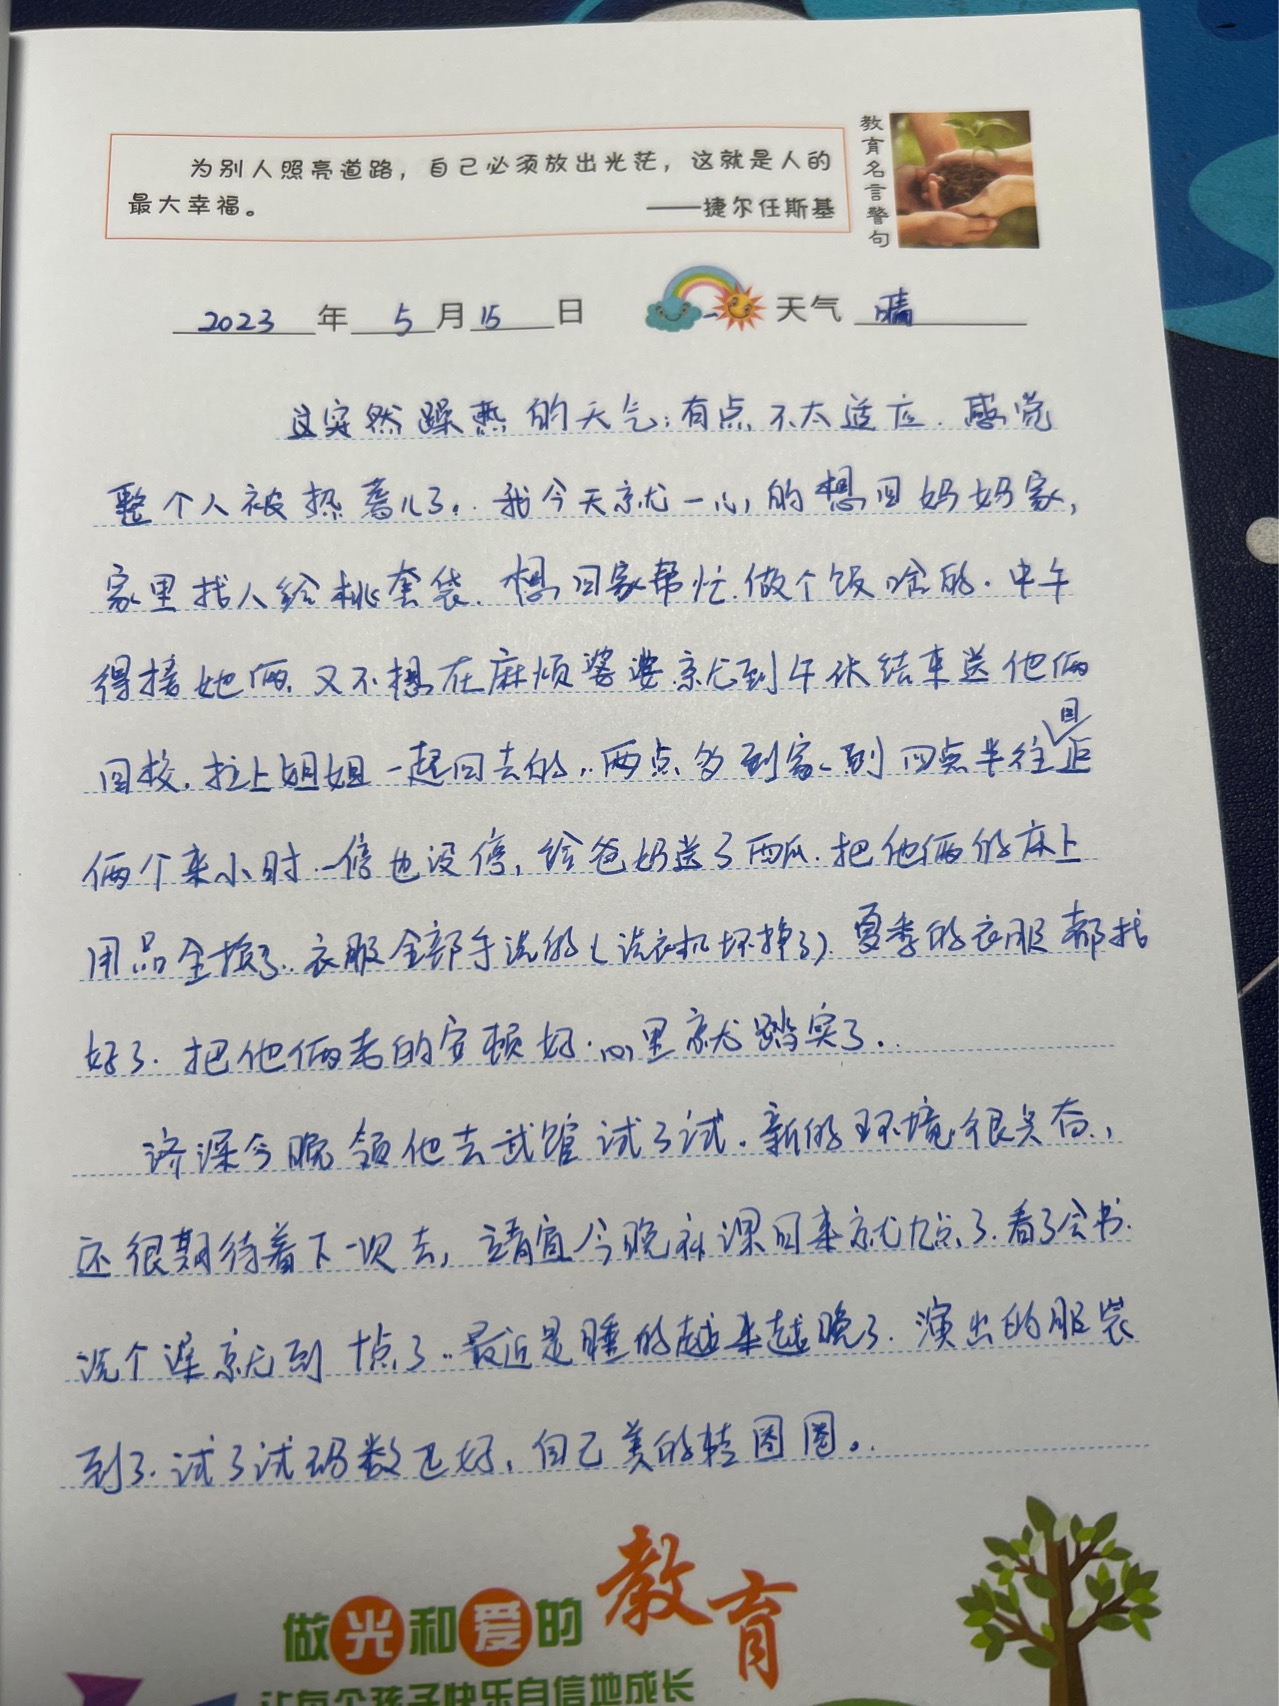 为别人照亮道路，自己必须放出光茫，这就是人的
最大幸福。 ——捷尔任斯基
教育名言警句
2023年5月15日 天气 晴
这突然躁热的天气；有点不太适应．感觉
整个人被热着儿了．．我今天就一心的想回妈妈家，
家里找人给桃套袋．想回家帮忙．做个饭啥的．中午
得接她俩．又不想在麻烦婆婆．就到午休结束送他俩
回校．拉上姐姐一起回去的．．两点多到家．到四点半往回走
俩个来小时．一停也没停，给爸妈送了西瓜．把他俩的床上
用品全换了．．衣服全部手洗的（洗衣机坏掉了）．夏季的衣服都找
好了．把他俩老的安顿好．心里就踏实了．．
济深今晚领他去武馆试了试．新的环境很兴奋．，
还很期待着下一次去，靖宜今晚补课回来就九点了．看了会书．
洗个澡就到十点了．．最近是睡的越来越晚了．演出的服装
到了．试了试码数正好，自己美的转圈圈。．
做光和爱的教育
让每个孩子快乐自信地成长